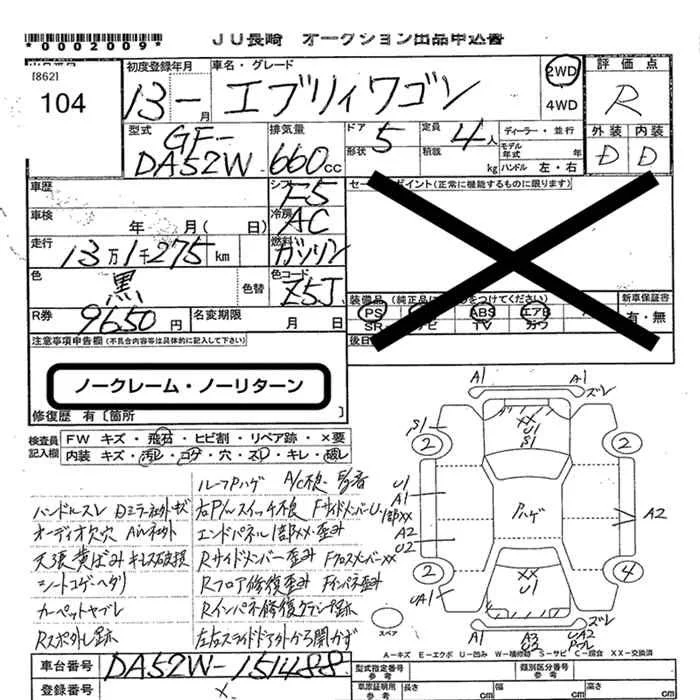 *0002009*
JU長崎 オークション出品申込書
[862]
104
初度登録年月
13年-月
車名・グレード
エブリィワゴン
2WD
4WD
評価点
R
外装 内装
D D
型式
GF-
DA52W
排気量
660cc
ドア 5
形状
定員 4人
積載 kg
ディーラー・並行
モデル年式 年
ハンドル 左・右
車歴
シフト F5
セールスポイント(正常に機能するものに限ります)
車検 年 月( 日)
冷房 AC
走行 13万1千275km
燃料 ガソリン
色 黒 色替
色コード Z5J
装備品 (純正品に をつけてください)
新車保証書
有・無
PS ABS エアB
SR ナビ TV
R券 9650円
名変期限 月 日
後日
注意事項申告欄(不具合内容等は具体的に記入して下さい)
ノークレーム・ノーリターン
修復歴 有〔箇所 〕
検査員記入欄
FW キズ・飛石・ヒビ割・リペア跡・×要
内装 キズ・汚レ・コゲ・穴・スレ・キレ・破レ
ルーフハゲ A/C不良 異音
ハンドルスレ
オーディオ欠 穴
天張黄ばみ キーレス破損
シートコゲ ヘタリ
カーペットヤブレ
エンドパネル1部XX・歪み
Rサイドメンバー歪み FクロスメンバーXX
Rフロア修復歪み Fインパネ歪み
左右スライドドア外から開かず
A1 A1 ズレ
S1
XX
U1
S1
2 2
U1
A1
1部XX
A2
U2
パハゲ
A2
2 4
UA1
XX
U1
ズレ
U1 A3 UA2
スペア
A-キズ E-エクボ U-凹み W-補修跡 S-サビ C-腐食 XX-交換済
車台番号 DA52W-151488
登録番号
型式指定番号
参考
類別区分番号
参考
車庫証明用
参考
長さ cm
幅 cm
高さ cm